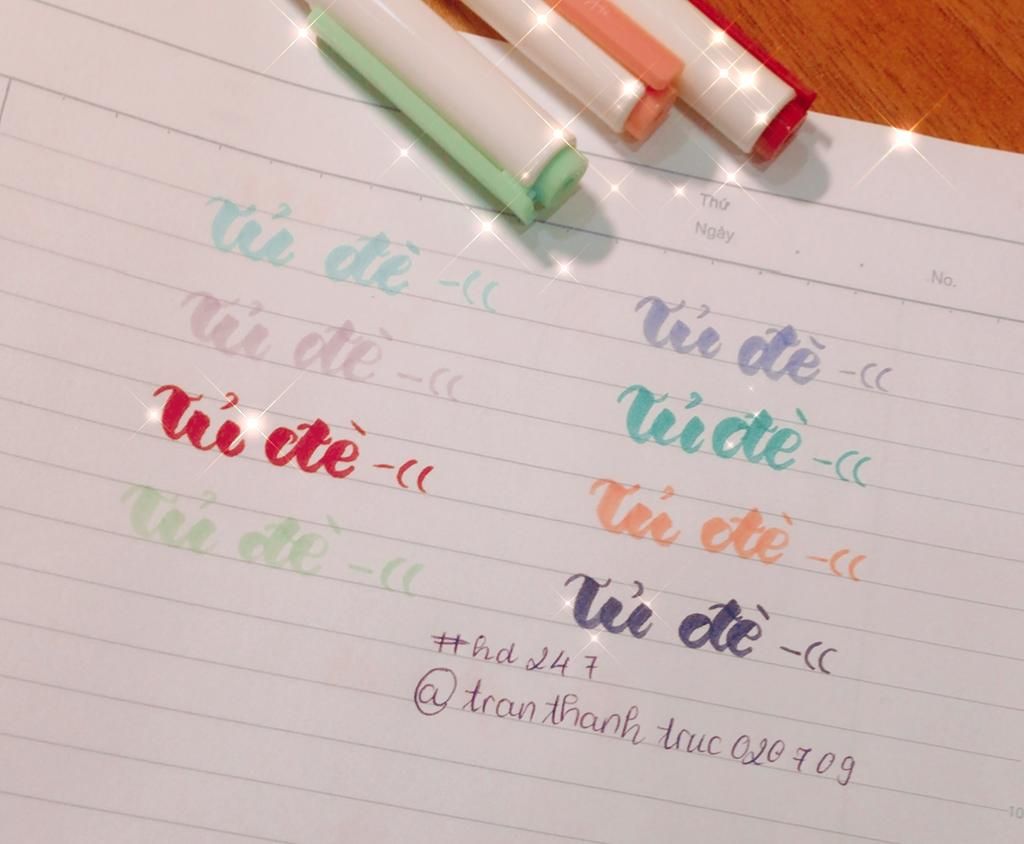 Thứ
Ngày
No.
Tủ đè -((
Tủ đè -((
Tủ đè -((
Tủ đè -((
Tủ đè -((
Tủ đè -((
Tủ đè -((
Tủ đè -((
#hd 247
@tranthanh truc 020709
10